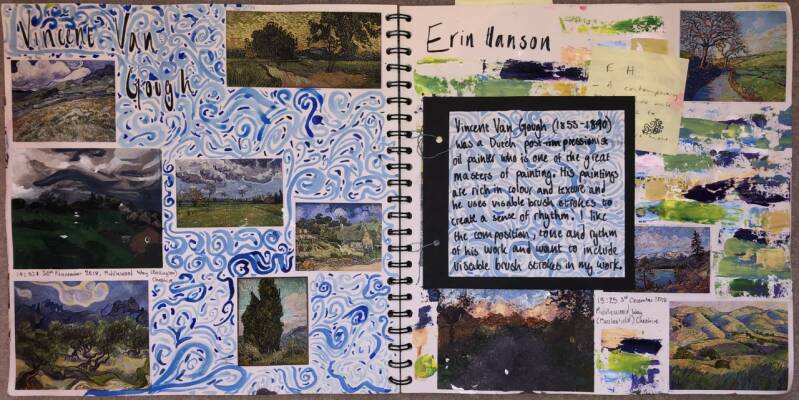 Vincent Van
Gough
14:52 30th November 2018, Middlewood Way
Cheshire
Erin Hanson
E H
- A contemporary
to
Vincent Van Gough (1853-1890)
was a Dutch post-impressionist
oil painter who is one of the great
masters of painting. His paintings
are rich in colour and texture and
he uses visable brush strokes to
create a sense of rhythm. I like
the composition, tone and rythm
of his work and want to include
viseable brush strokes in my work.
15:25 3rd December 2018
Middlewood Way
(Macclesfield) Cheshire